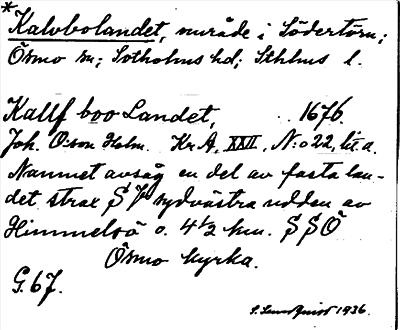 *
Kalvbolandet, område i Södertörn;
Ösmo sn; Sotholms hd; Sthlms l.
Kallf boo Landet, 1676.
Joh. O:son Holm. Kr A, XXII, N:o 22, lit. a.
Namnet avsåg en del av fasta lan-
det strax S sydvästra udden av
Himmelsö o. 4 1/2 km. SSÖ
Ösmo kyrka.
G. 67.
S. Lundquist 1936.